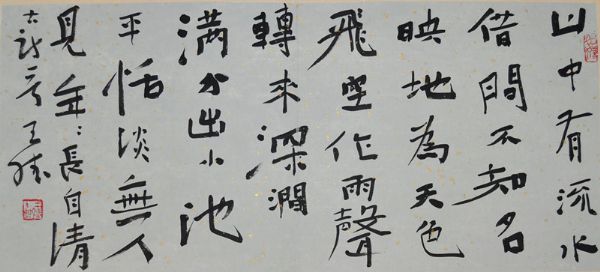 山中有流水
借問不知名
映地為天色
飛空作雨聲
轉來深澗
滿分出小池
平恬淡無人
見年〻長自清
古詩